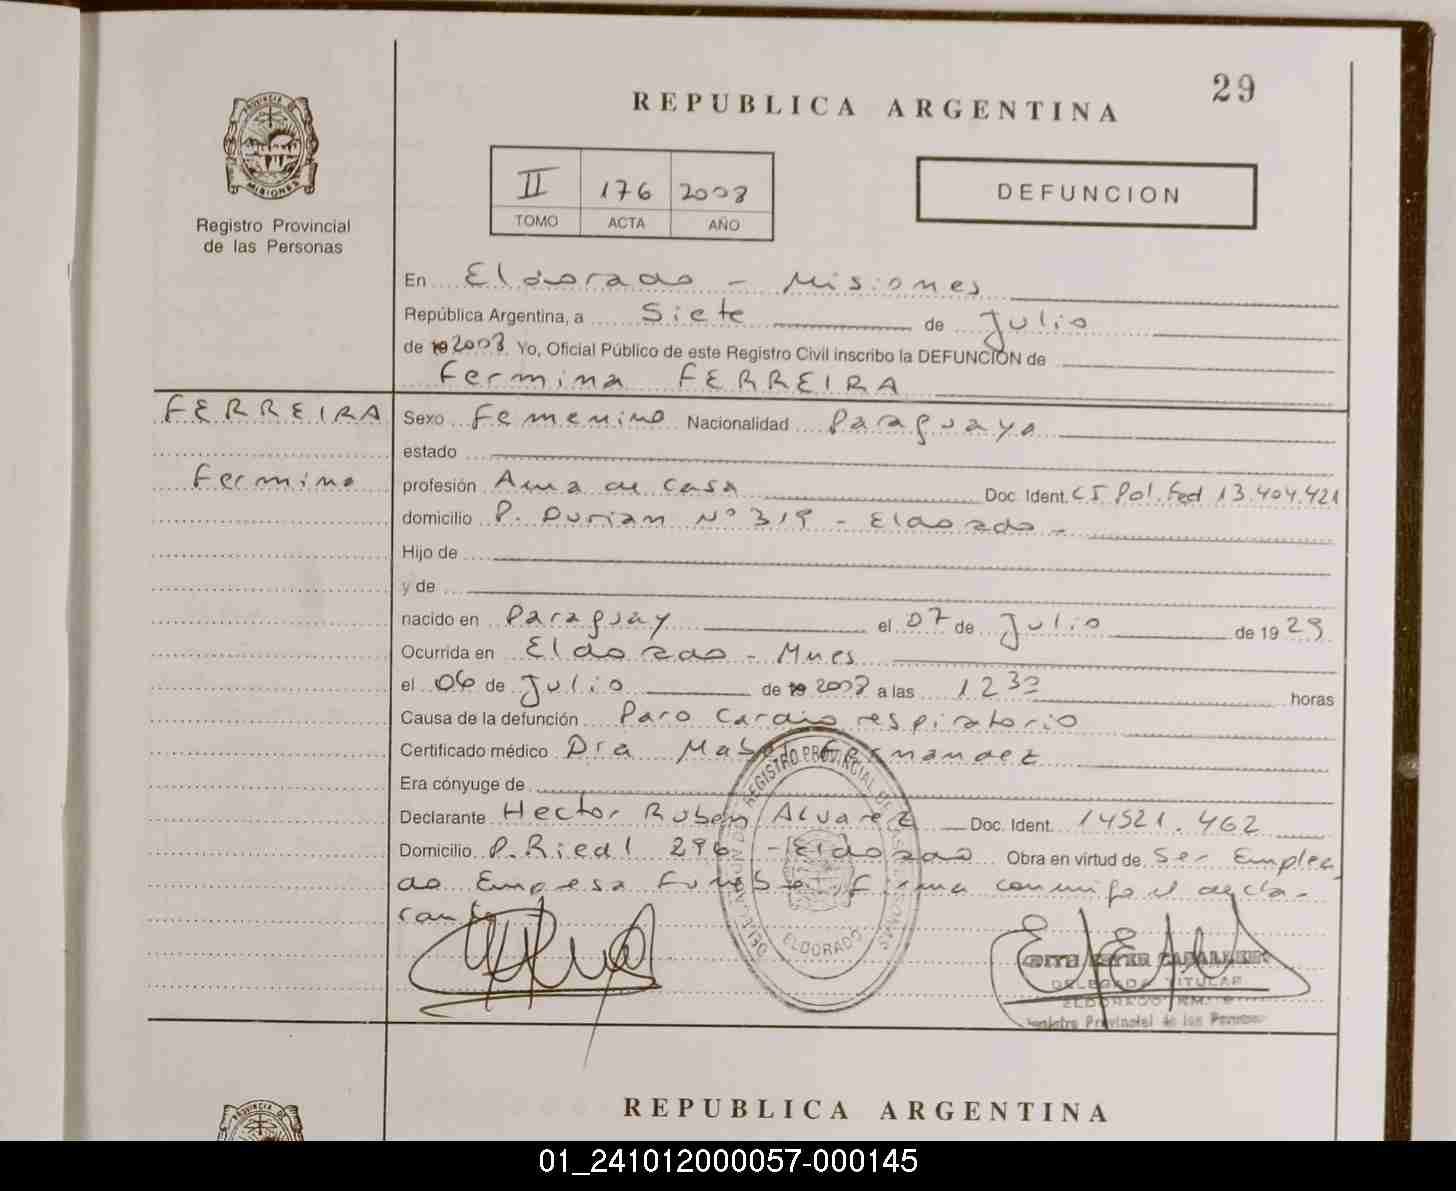 29
REPUBLICA ARGENTINA
PROVINCIA DE
MISIONES
Registro Provincial
de las Personas
II 176 2008
TOMO ACTA AÑO
DEFUNCION
En Eldorado - Misiones
República Argentina, a Siete de Julio
de 19 2008. Yo, Oficial Público de este Registro Civil inscribo la DEFUNCIÓN de
Fermina FERREIRA
FERREIRA
Fermina
Sexo Femenino Nacionalidad Paraguaya
estado
profesión Ama de Casa Doc. Ident. CI Pol. Fed 13.404.421
domicilio P. Durian Nº 319 - Eldorado -
Hijo de
y de
nacido en Paraguay el 07 de Julio de 19 29
Ocurrida en Eldorado - Mnes
el 06 de Julio de 19 2008 a las 12 30 horas
Causa de la defunción Paro Cardio respiratorio
Certificado médico Dra Mabel Fernandez
Era cónyuge de
Declarante Hector Ruben Alvarez Doc. Ident. 14521.462
Domicilio P. Riedl 296 - Eldorado Obra en virtud de Ser Emplea
do Empresa Funebre, Firma conmigo el decla-
rante
REGISTRO PROVINCIAL DE LAS PERSONAS
ELDORADO
DELEGADA TITULAR
ELDORADO
Registro Provincial de las Personas
REPUBLICA ARGENTINA
01_241012000057-000145